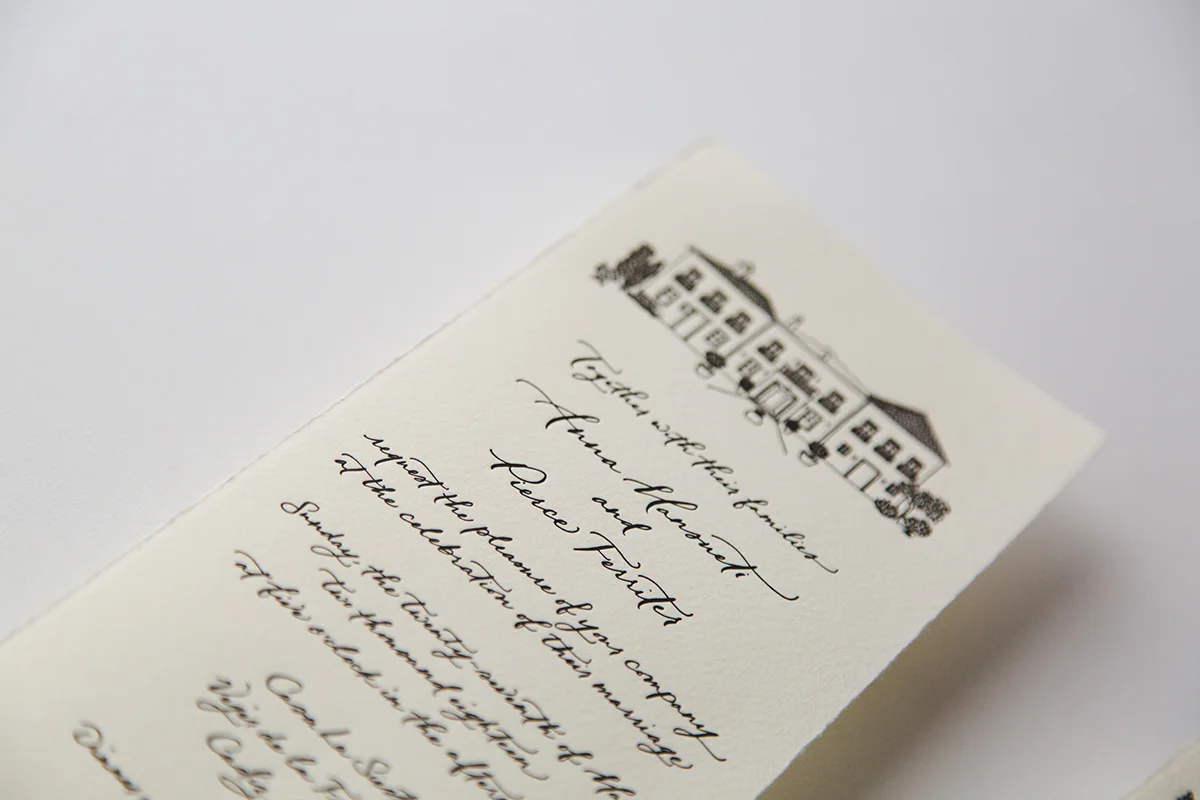 Together with their families
Anna Mansueti
and
Pierce Ferriter
request the pleasure of your company
at the celebration of their marriage
Sunday, the twenty-seventh of
two thousand eighteen
at five o'clock in the
Casa La
de la
Cadiz